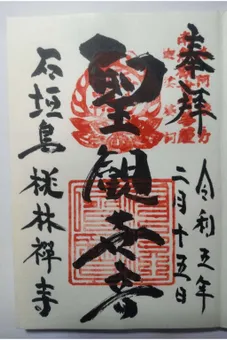 奉拝
令和五年
二月十五日
聖観世音
石垣島 桃林禅寺